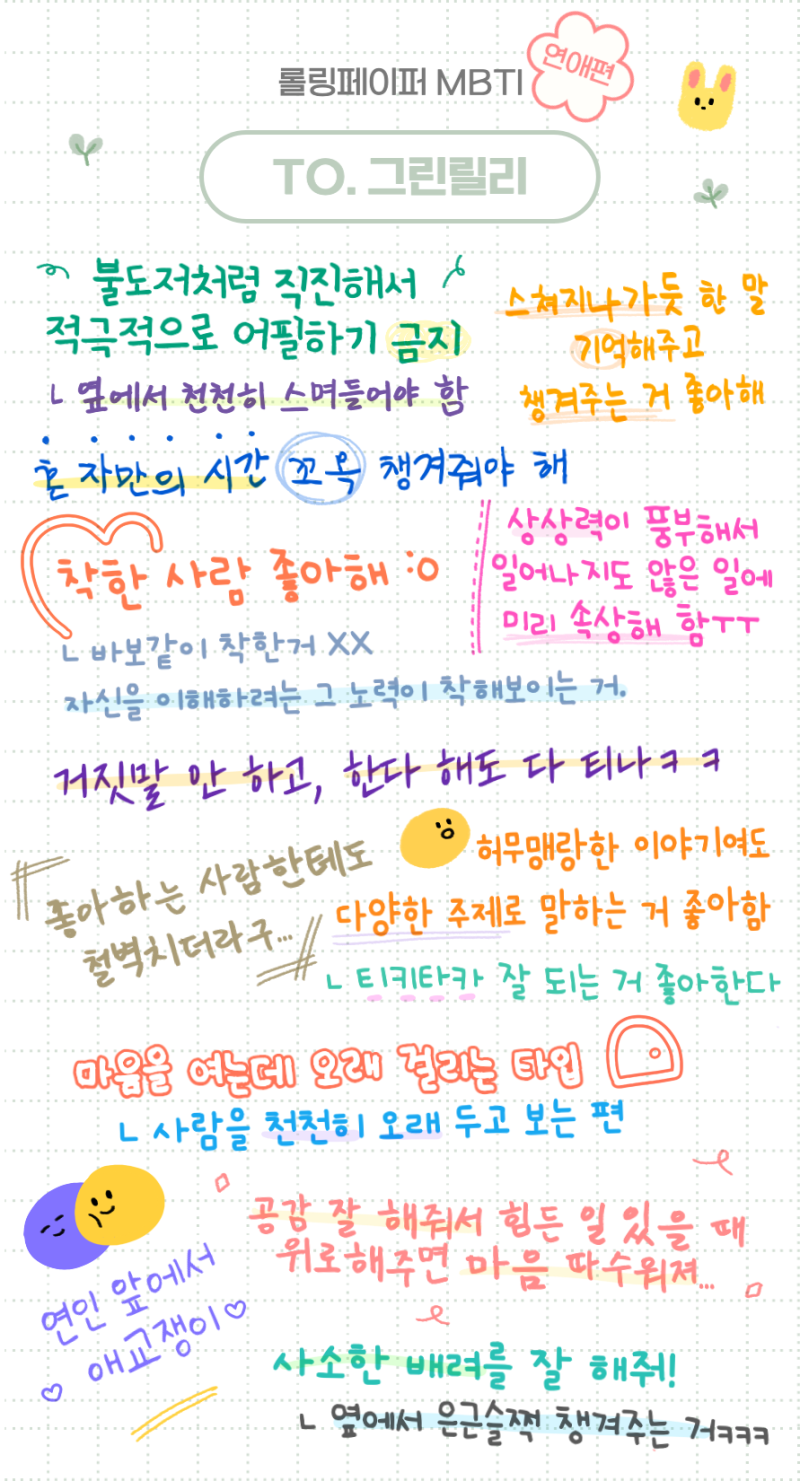 롤링페이퍼 MBTI
연애편
TO. 그린릴리
불도저처럼 직진해서
적극적으로 어필하기 금지
ㄴ 옆에서 천천히 스며들어야 함
스쳐지나가듯 한 말
기억해주고
챙겨주는 거 좋아해
혼자만의 시간 꼬옥 챙겨줘야 해
착한 사람 좋아해 :o
ㄴ 바보같이 착한거 XX
자신을 이해하려는 그 노력이 착해보이는 거.
상상력이 풍부해서
일어나지도 않은 일에
미리 속상해 함ㅜㅜ
거짓말 안 하고, 한다 해도 다 티나ㅋㅋ
좋아하는 사람한테도
철벽치더라구...
허무맹랑한 이야기여도
다양한 주제로 말하는 거 좋아함
ㄴ 티키타카 잘 되는 거 좋아한다
마음을 여는데 오래 걸리는 타입
ㄴ 사람을 천천히 오래 두고 보는 편
공감 잘 해줘서 힘든 일 있을 때
위로해주면 마음 따수워져...
연인 앞에서
애교쟁이♡
사소한 배려를 잘 해줘!
ㄴ 옆에서 은근슬쩍 챙겨주는 거ㅋㅋㅋ